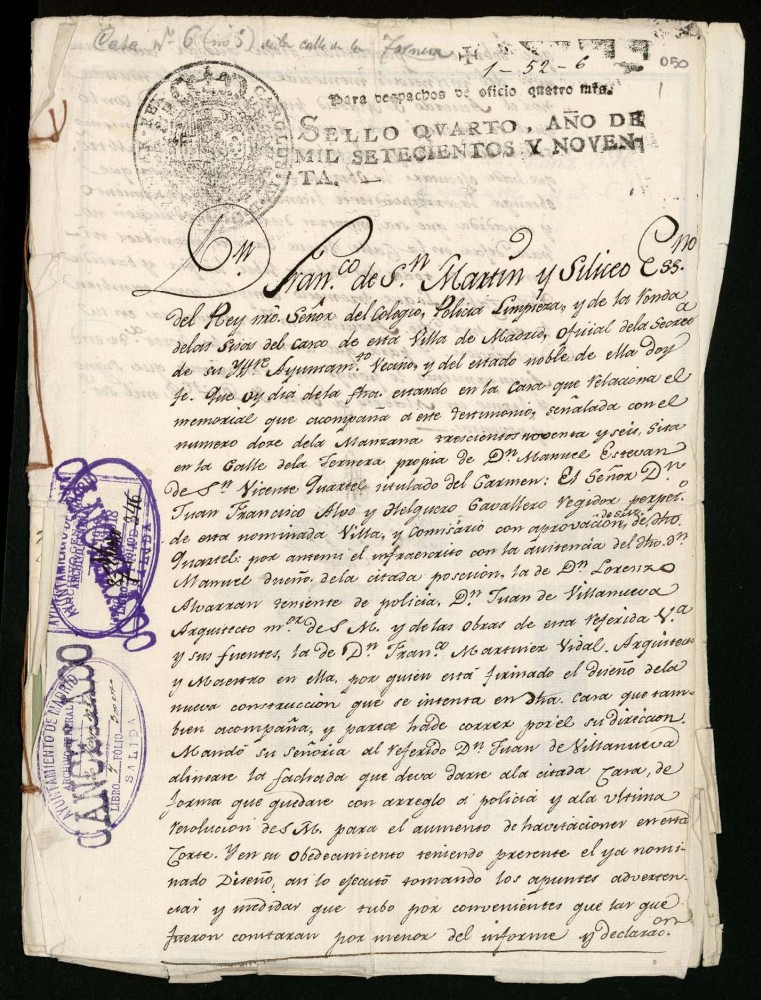 Casa Nº 6 (nº 3) de la calle de la Ternera
1-52-6
050
1
Para despachos de oficio quatro mrs.
SELLO QVARTO, AÑO DE
MIL SETECIENTOS Y NOVEN-
TA.
CAROLUS
Dn. Fran.co de Sn. Martin y Siliceo Ess.no
del Rey nro. Señor del Colegio, Policia Limpieza, y de la Ronda
delas Sisas del Casco de esta Villa de Madrid, Oficial dela Secreª
de su Yltre Ayuntam.to Vecino, y del estado noble de ella Doy
fe. Que oy dia dela fha. estando en la Casa que relaciona el
memorial que acompaña a este testimonio, señalada con el
numero doze dela Manzana trescientos noventa y seis, Sita
en la Calle dela Ternera propia de Dn. Manuel Estevan
de Sn. Vicente Quartel titulado del Carmen: El Señor Dn.
Juan Francisco Alvo y Helguero Cavallero Regidor perpet.o
de esta nominada Villa, y Comisario con aprovacion, de S.M. de dho.
Quartel: por antemi el infraescrito con la asistencia del dho. Dn.
Manuel dueño de la citada posesion, la de Dn. Lorenzo
Alvarran teniente de policia, Dn. Juan de Villanueva
Arquitecto m.or de S M. y delas Obras de esta referida V.a
y sus fuentes, la de Dn. Fran.co Martinez Vidal, Arquitecto
y Maestro en ella, por quien está firmado el diseño dela
nueva construccion que se intenta en dha. Casa que tam-
bien acompaña, y parece hade correr por el su direccion.
Mandó su señoria al referido Dn. Juan de Villanueva
alinease la fachada que deva darse ala citada Casa, de
forma que quedase con arreglo a policia y ala ultima
resolucion de S M. para el aumento de havitaciones en esta
Corte. Y en su obedecimiento teniendo presente el ya nomi-
nado Diseño, asi lo ejecutó tomando los apuntes adverten-
cias y medidas que tubo por convenientes que las que
fueron constaran por menor del informe y declarac.on
AYUNTAMIENTO DE MADRID
ARCHIVO GENERAL
LIBRO FOLIO
SALIDA
CANCELADO